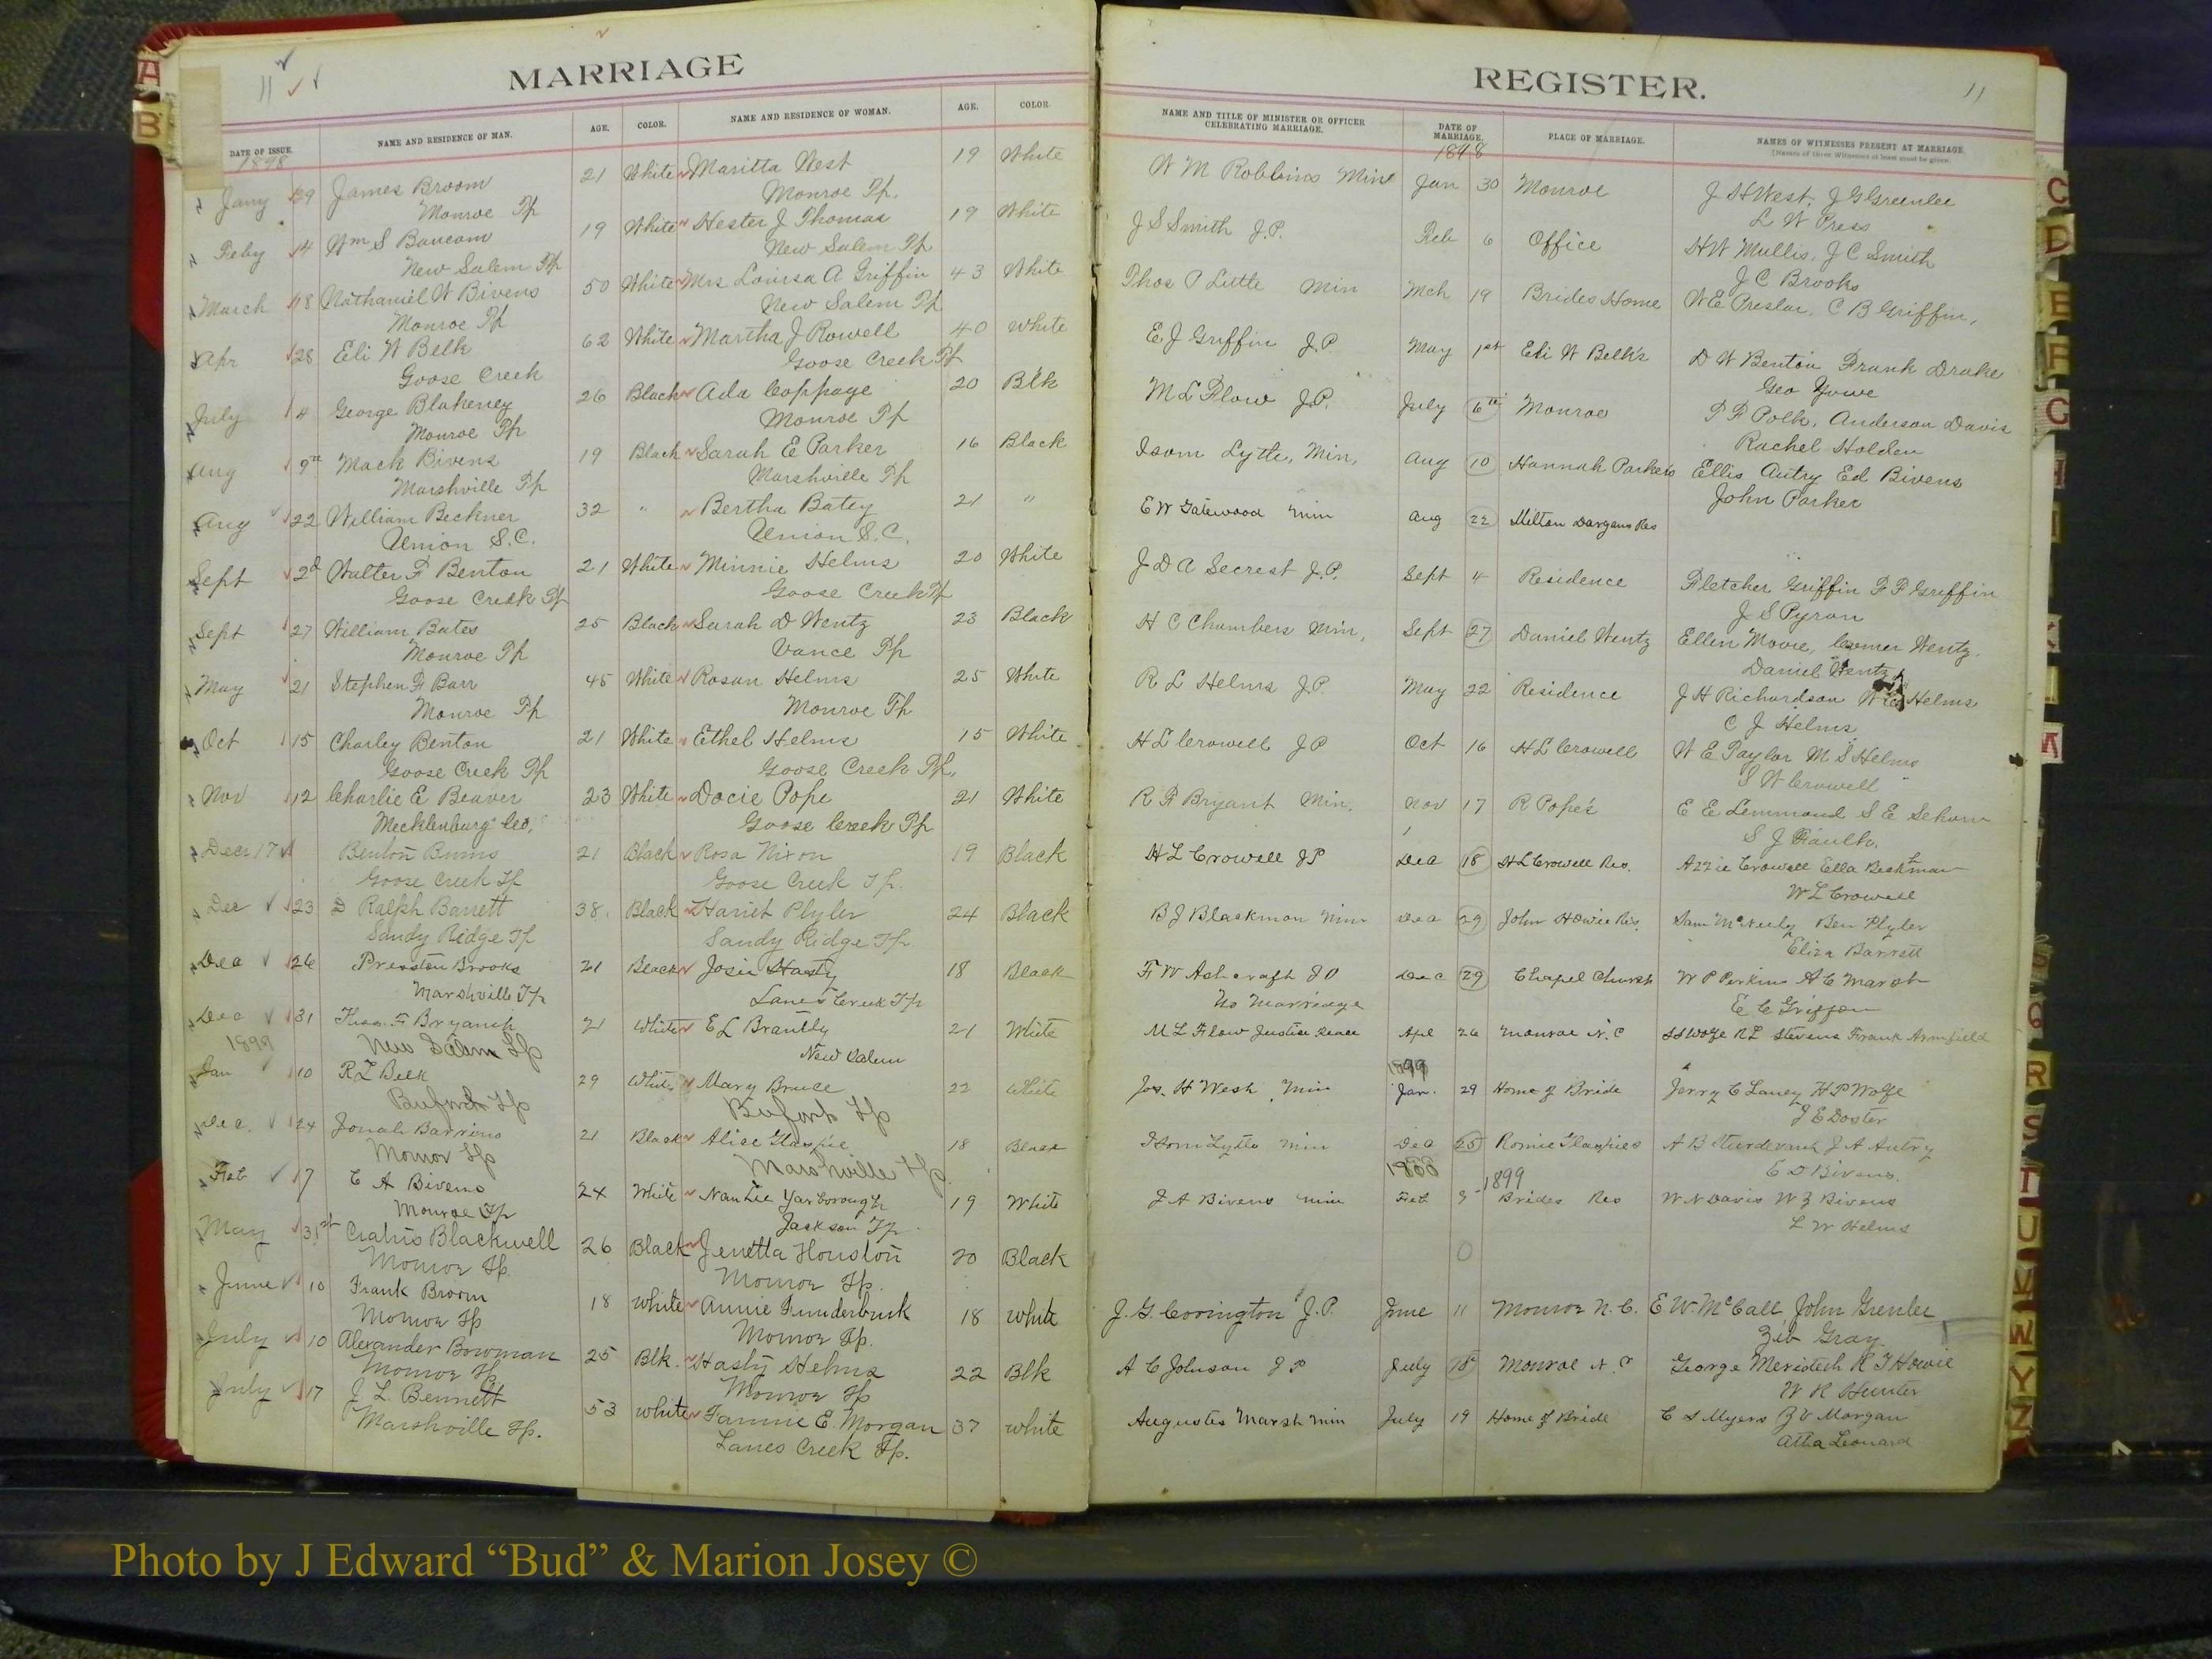 MARRIAGE
REGISTER.
11
11
DATE OF ISSUE. NAME AND RESIDENCE OF MAN. AGE. COLOR. NAME AND RESIDENCE OF WOMAN. AGE. COLOR. NAME AND TITLE OF MINISTER OR OFFICER CELEBRATING MARRIAGE. DATE OF MARRIAGE. PLACE OF MARRIAGE. NAMES OF WITNESSES PRESENT AT MARRIAGE.
[Names of three Witnesses at least must be given.
1898 1898
Jany 29 James Broom 21 White Maritta West 19 White W M Robbins Min Jan 30 Monroe J H West, J G Greenlee
Monroe Tp Monroe Tp. L W Press
Feby 4 Wm S Baucom 19 White Hester J Thomas 19 White J S Smith J.P. Feb 6 Office H W Mullis, J C Smith
New Salem Tp New Salem Tp J C Brooks
March 18 Nathaniel W Bivens 50 White Mrs Louisa A Griffin 43 White Thos P Little Min Mch 19 Brides Home W E Preslar, C B Griffin,
Monroe Tp New Salem Tp
Apr 28 Eli W Belk 62 White Martha J Rowell 40 White E J Griffin J.P. May 1st Eli W Belk's D W Benton Frank Drake
Goose Creek Goose Creek Tp Geo Yowe
July 4 George Blakeney 26 Black Ada Coppage 20 Blk M L Flow J.P. July 6th Monroe T F Polk, Anderson Davis
Monroe Tp Monroe Tp Rachel Holden
Aug 9th Mack Bivens 19 Black Sarah E Parker 16 Black Isom Lytle, Min, Aug 10 Hannah Parkers Ellis Autry Ed Bivens
Marshville Tp Marshville Tp John Parker
Aug 22 William Beckner 32 " Bertha Batey 21 " E W Gatewood Min Aug 22 Milton Dargans Res
Union S.C. Union S.C.
Sept 2d Walter F Benton 21 White Minnie Helms 20 White J D A Secrest J.P. Sept 4 Residence Fletcher Griffin F F Griffin
Goose Creek Tp Goose Creek Tp J S Pyron
Sept 27 William Bates 25 Black Sarah D Wentz 23 Black H C Chambers Min, Sept 27 Daniel Wentz Ellen Moore, Wentz.
Monroe Tp Vance Tp Daniel Wentz
May 21 Stephen F Barr 45 White Rosan Helms 25 White R L Helms J.P. May 22 Residence J H Richardson Helms
Monroe Tp Monroe Tp C J Helms
Oct 15 Charley Benton 21 White Ethel Helms 15 White H L Crowell J P Oct 16 H L Crowell W E Taylor M S Helms
Goose Creek Tp Goose Creek Tp. S W Crowell
Nov 12 Charlie E Beaver 23 White Docie Pope 21 White R F Bryant Min. Nov 17 R Pope's E E Lemmond S E
Mecklenburg Co. Goose Creek Tp S J Faulk.
Dec 17 Benton Burns 21 Black Rosa Nixon 19 Black H L Crowell J P Dec 18 H L Crowell Res. Azzie Crowell Ella Beckman
Goose Creek Tp Goose Creek Tp. W L Crowell
Dec 23 D Ralph Barrett 38. Black Hariet Plyler 24 Black B J Blackmon Min Dec 29 John Howie Res, Sam McNeely Ben Plyler
Sandy Ridge Tp Sandy Ridge Tp Eliza Barrett
Dec 26 Preston Brooks 21 Black Josie Hasty 18 Black F W Ashcraft J P Dec 29 Chapel Church W P Perkins A C Marsh
Marshville Tp Lanes Creek Tp No Marriage E C Griffin
Dec 31 Thos. F Bryant 21 White E L Brantly 21 White M L Flow Justice Peace Apl 26 Monroe N. C S S Wolfe R L Stevens Frank Armfield
1899 New Salem Tp New Salem 1899
Jan 10 R L Belk 29 White Mary Bruce 22 White Jos. H West Min Jan. 29 Home of Bride Jerry C Laney H P Wolfe
Buford Tp Buford Tp J E Doster
Dec. 24 Jonah Barrino 21 Black Alice 18 Black Isom Lytle Min Dec 25 A B Sturdevant J A Autry
Monroe Tp Marshville Tp 1900 1899 E D Bivens.
Feb 17 C A Bivens 24 White Nan Lee Yarborough 19 White J A Bivens Min Feb Brides Res W N Davis W Z Bivens
Monroe Tp Jackson Tp L W Helms
May 31st Blackwell 26 Black Jenetta Houston 20 Black 0
Monroe Tp. Monroe Tp.
June 10 Frank Broom 18 White Annie Funderburk 18 White J. G. Covington J.P. June 11 Monroe N. C. E W. McCall, John Grenlee
Monroe Tp Monroe Tp. Zeb Gray
July 10 Alexander Bowman 25 Blk. Hasty Helms 22 Blk A C Johnson J P July Monroe N. C. George H T Howie
Monroe Tp Monroe Tp W R Hunter
July 17 J. L. Bennett 53 White Fannie E. Morgan 37 White Augustus Marsh Min July 19 Home of Bride C S Myers Z V Morgan
Marshville Tp. Lanes Creek Tp. Atha Leonard
A
B
C
D
E
F
G
H
I
K
L
M
Q
R
S
T
U
V
W
Y
Z
Photo by J Edward “Bud” & Marion Josey ©